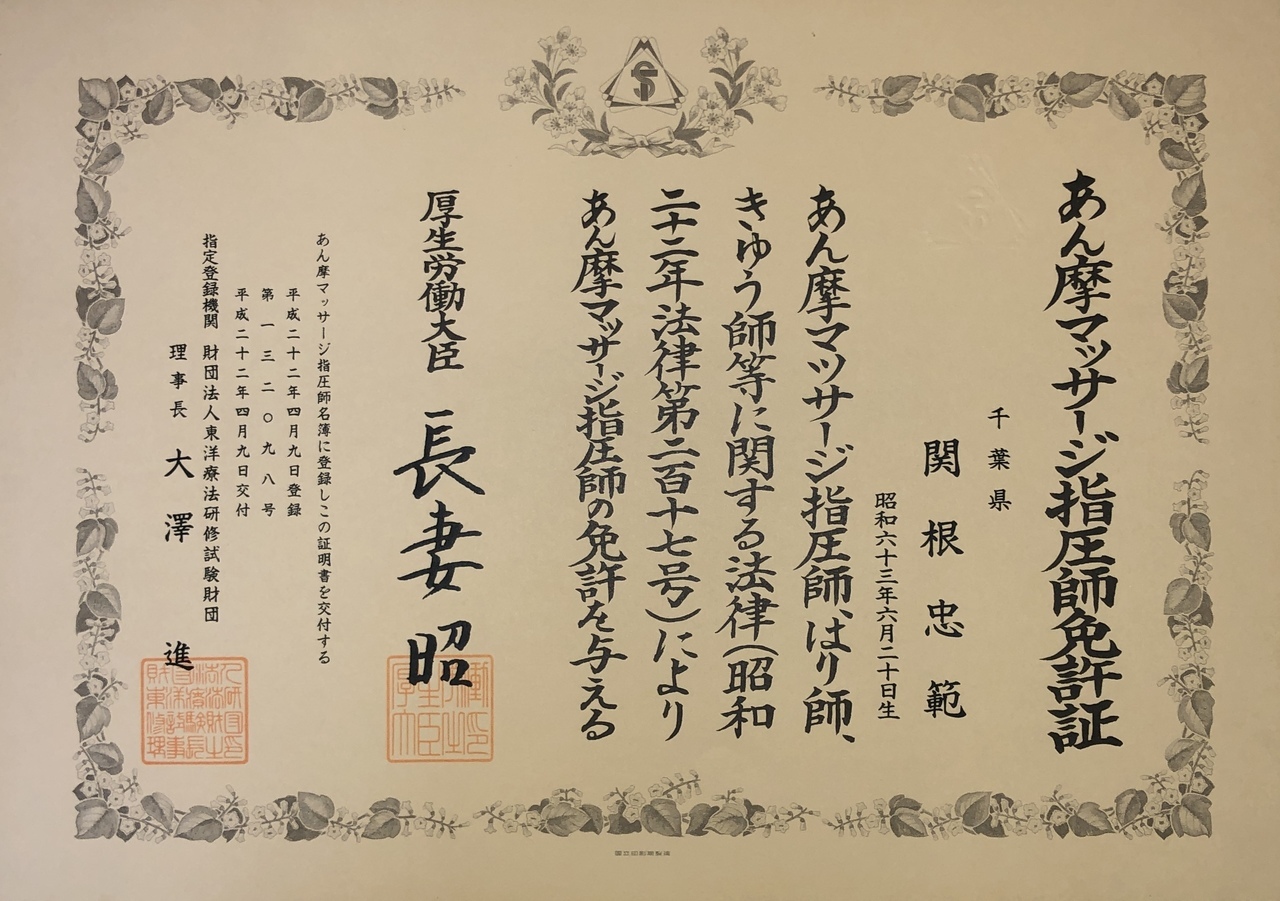 あん摩マッサージ指圧師免許証
千葉県
関根忠範
昭和六十三年六月二十日生
あん摩マッサージ指圧師、はり師、
きゆう師等に関する法律(昭和
二十二年法律第二百十七号)により
あん摩マッサージ指圧師の免許を与える
厚生労働大臣 長妻昭
あん摩マッサージ指圧師名簿に登録しこの証明書を交付する
平成二十二年四月九日登録
第一三二〇九八号
平成二十二年四月九日交付
指定登録機関 財団法人東洋療法研修試験財団
理事長 大澤進